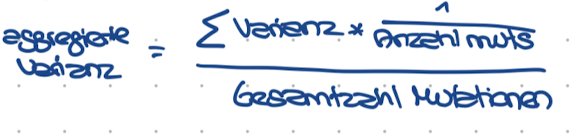 aggregierte Varianz = Σ Varianz * 1 / Anzahl muts
Gesamtzahl Mutationen